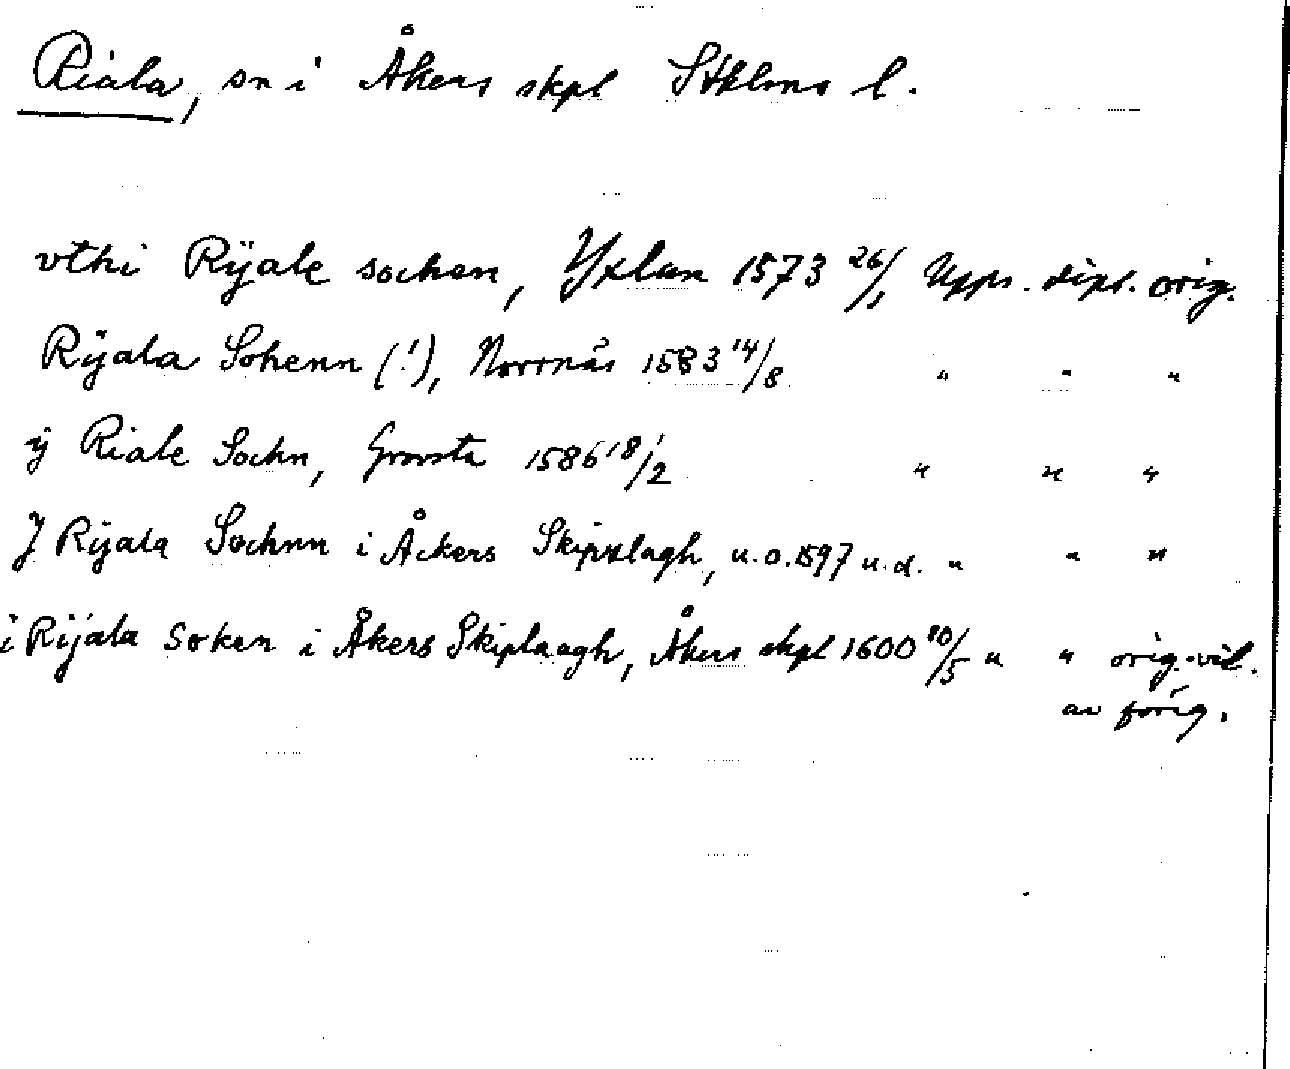 Riala, sn i Åkers skpl Sthlms l.
vthi Rÿale sochen, Yxlan 1573 26/1 Upps. dipl. orig.
Rÿala Sohenn (!), Norrnäs 1583 14/8 " " "
ÿ Riale Sochn, Grovsta 1586 18/2 " " "
J Rijala Sochnn i Åckers Skipslagh, u.o. 1597 u.d. " " "
i Rijala soken i Åkers Skiplaagh, Åkers skpl 1600 10/5 " " orig.-vid.
av förig.